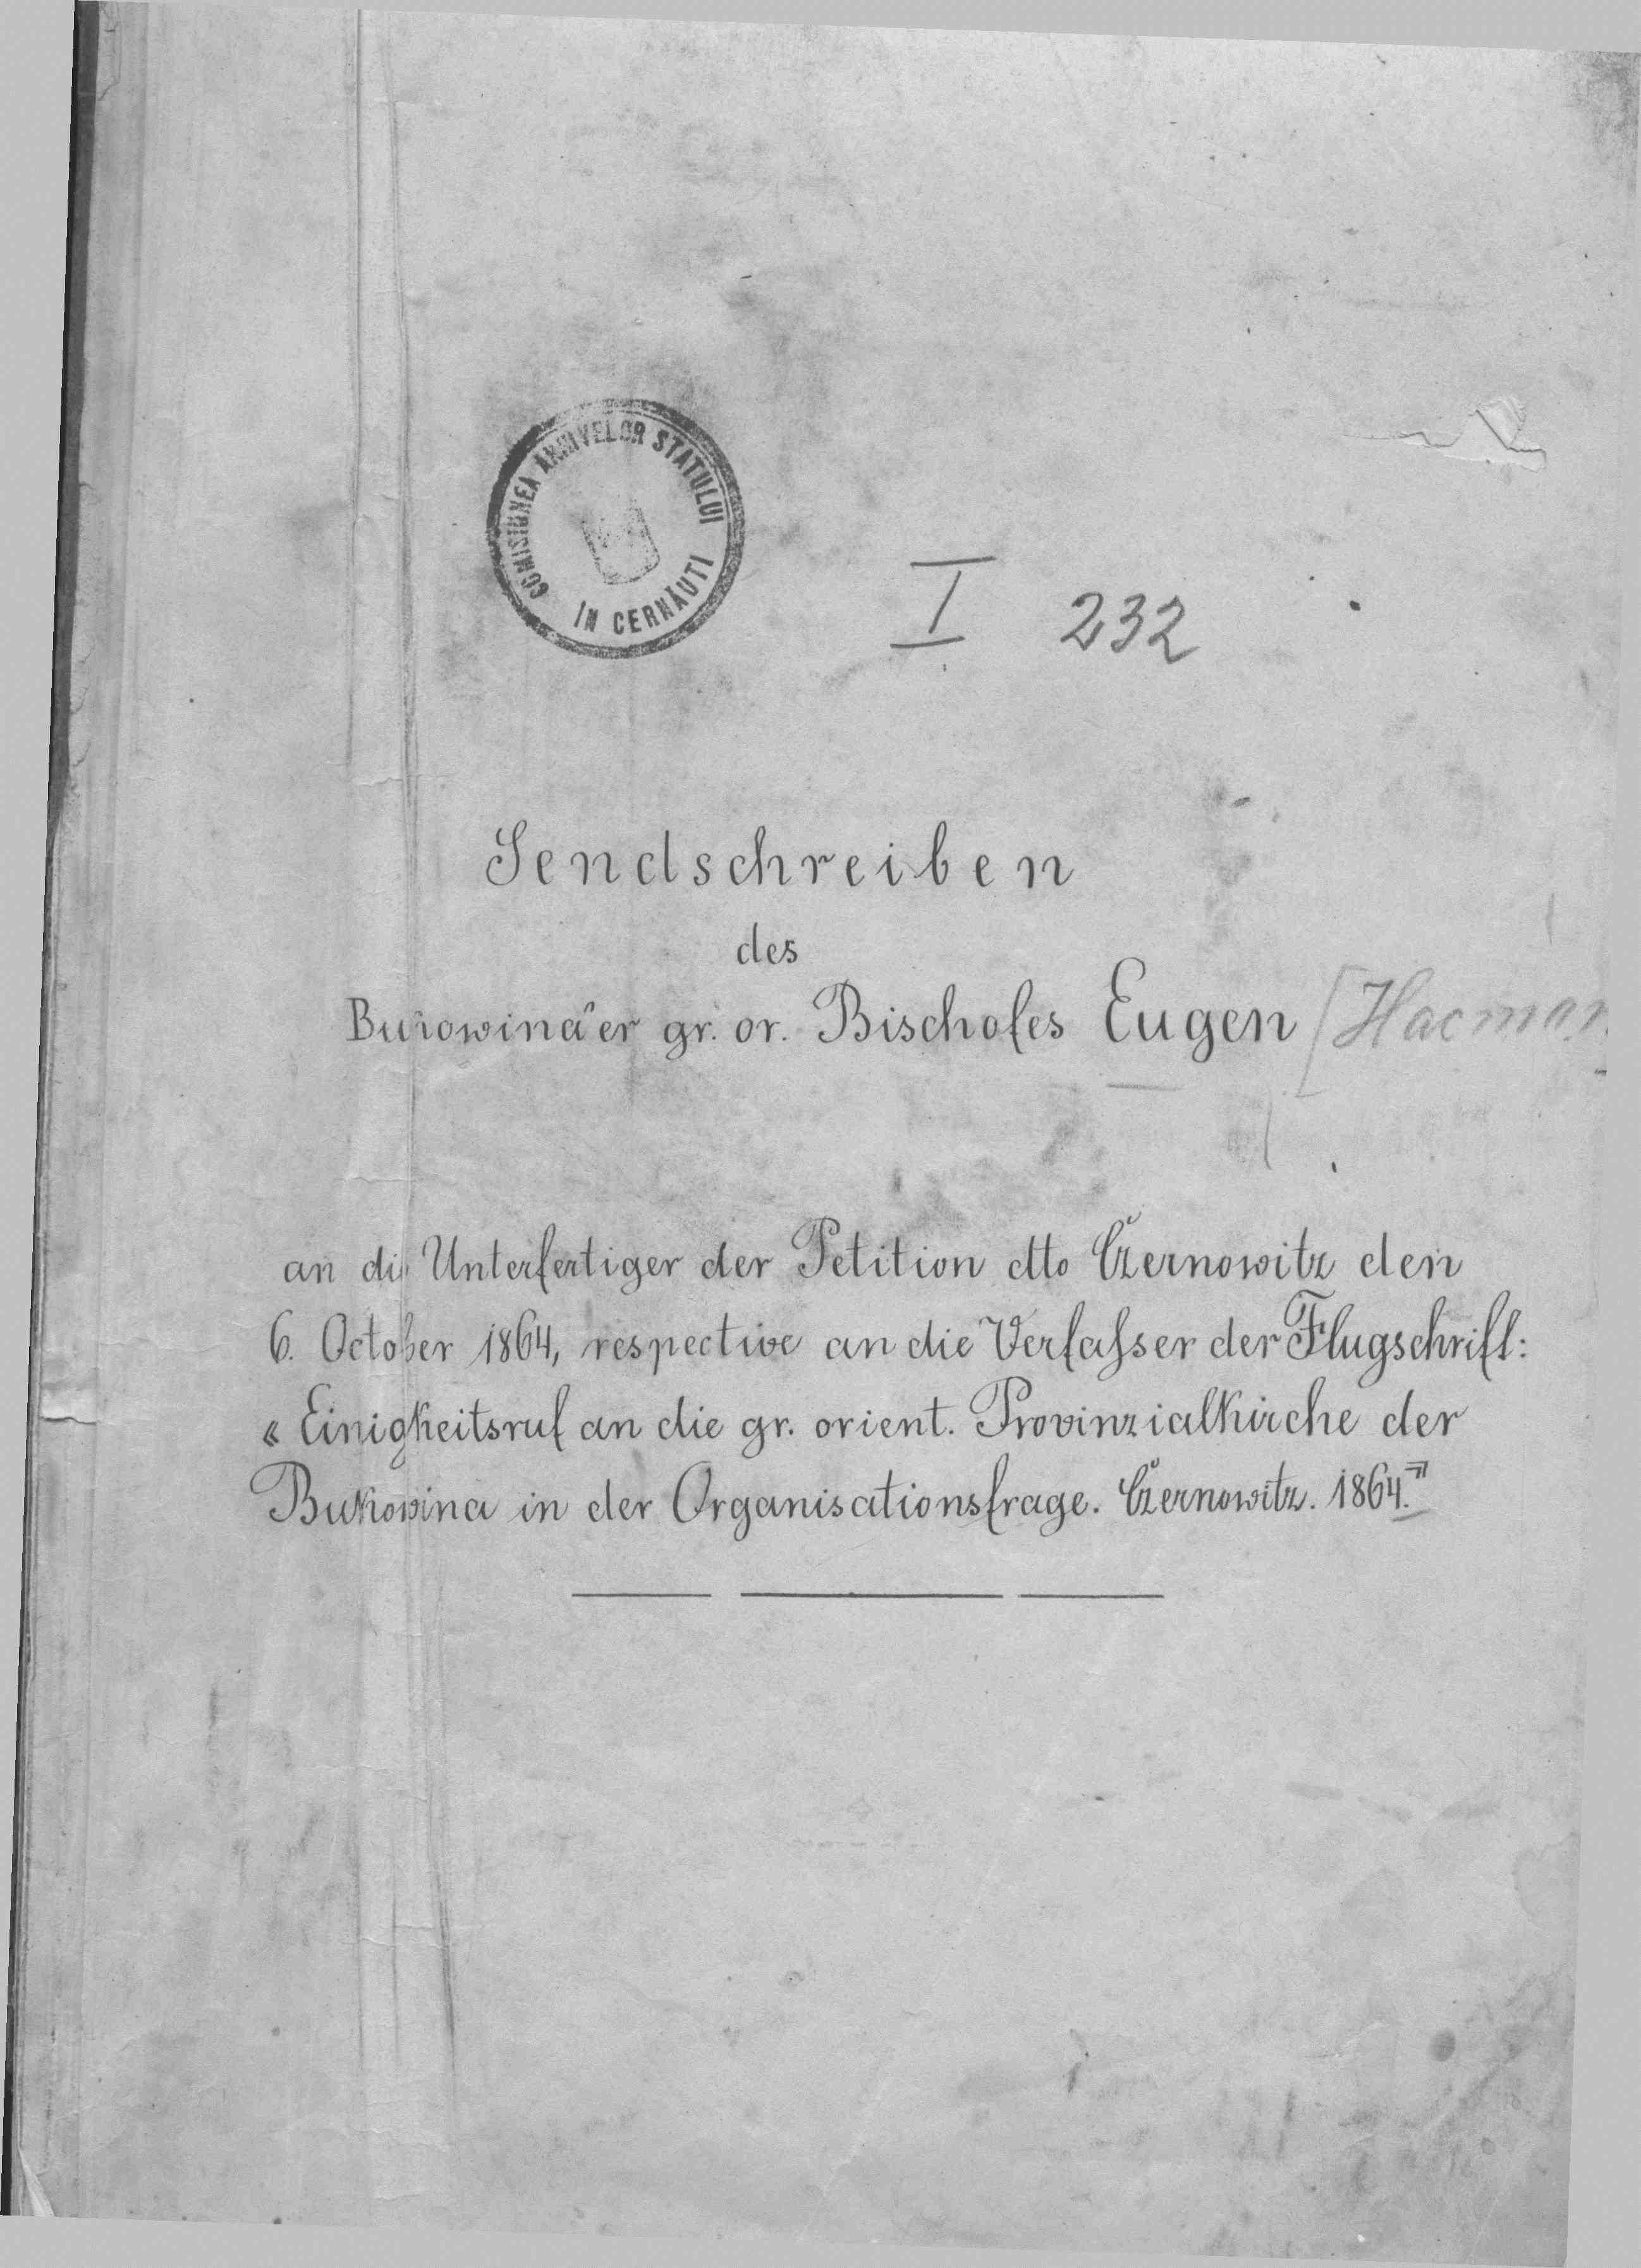 COMISIUNEA ARHIVELOR STATULUI
IN CERNĂUTI
I 232
Sendschreiben
des
Bukowina'er gr. or. Bischofes Eugen [Hacman
an die Unterfertiger der Petition dto Czernowitz den
6. October 1864, respective an die Verfaſser der Flugschrift:
« Einigkeitsruf an die gr. orient. Provinzialkirche der
Bukovina in der Organisationsfrage. Czernowitz. 1864."